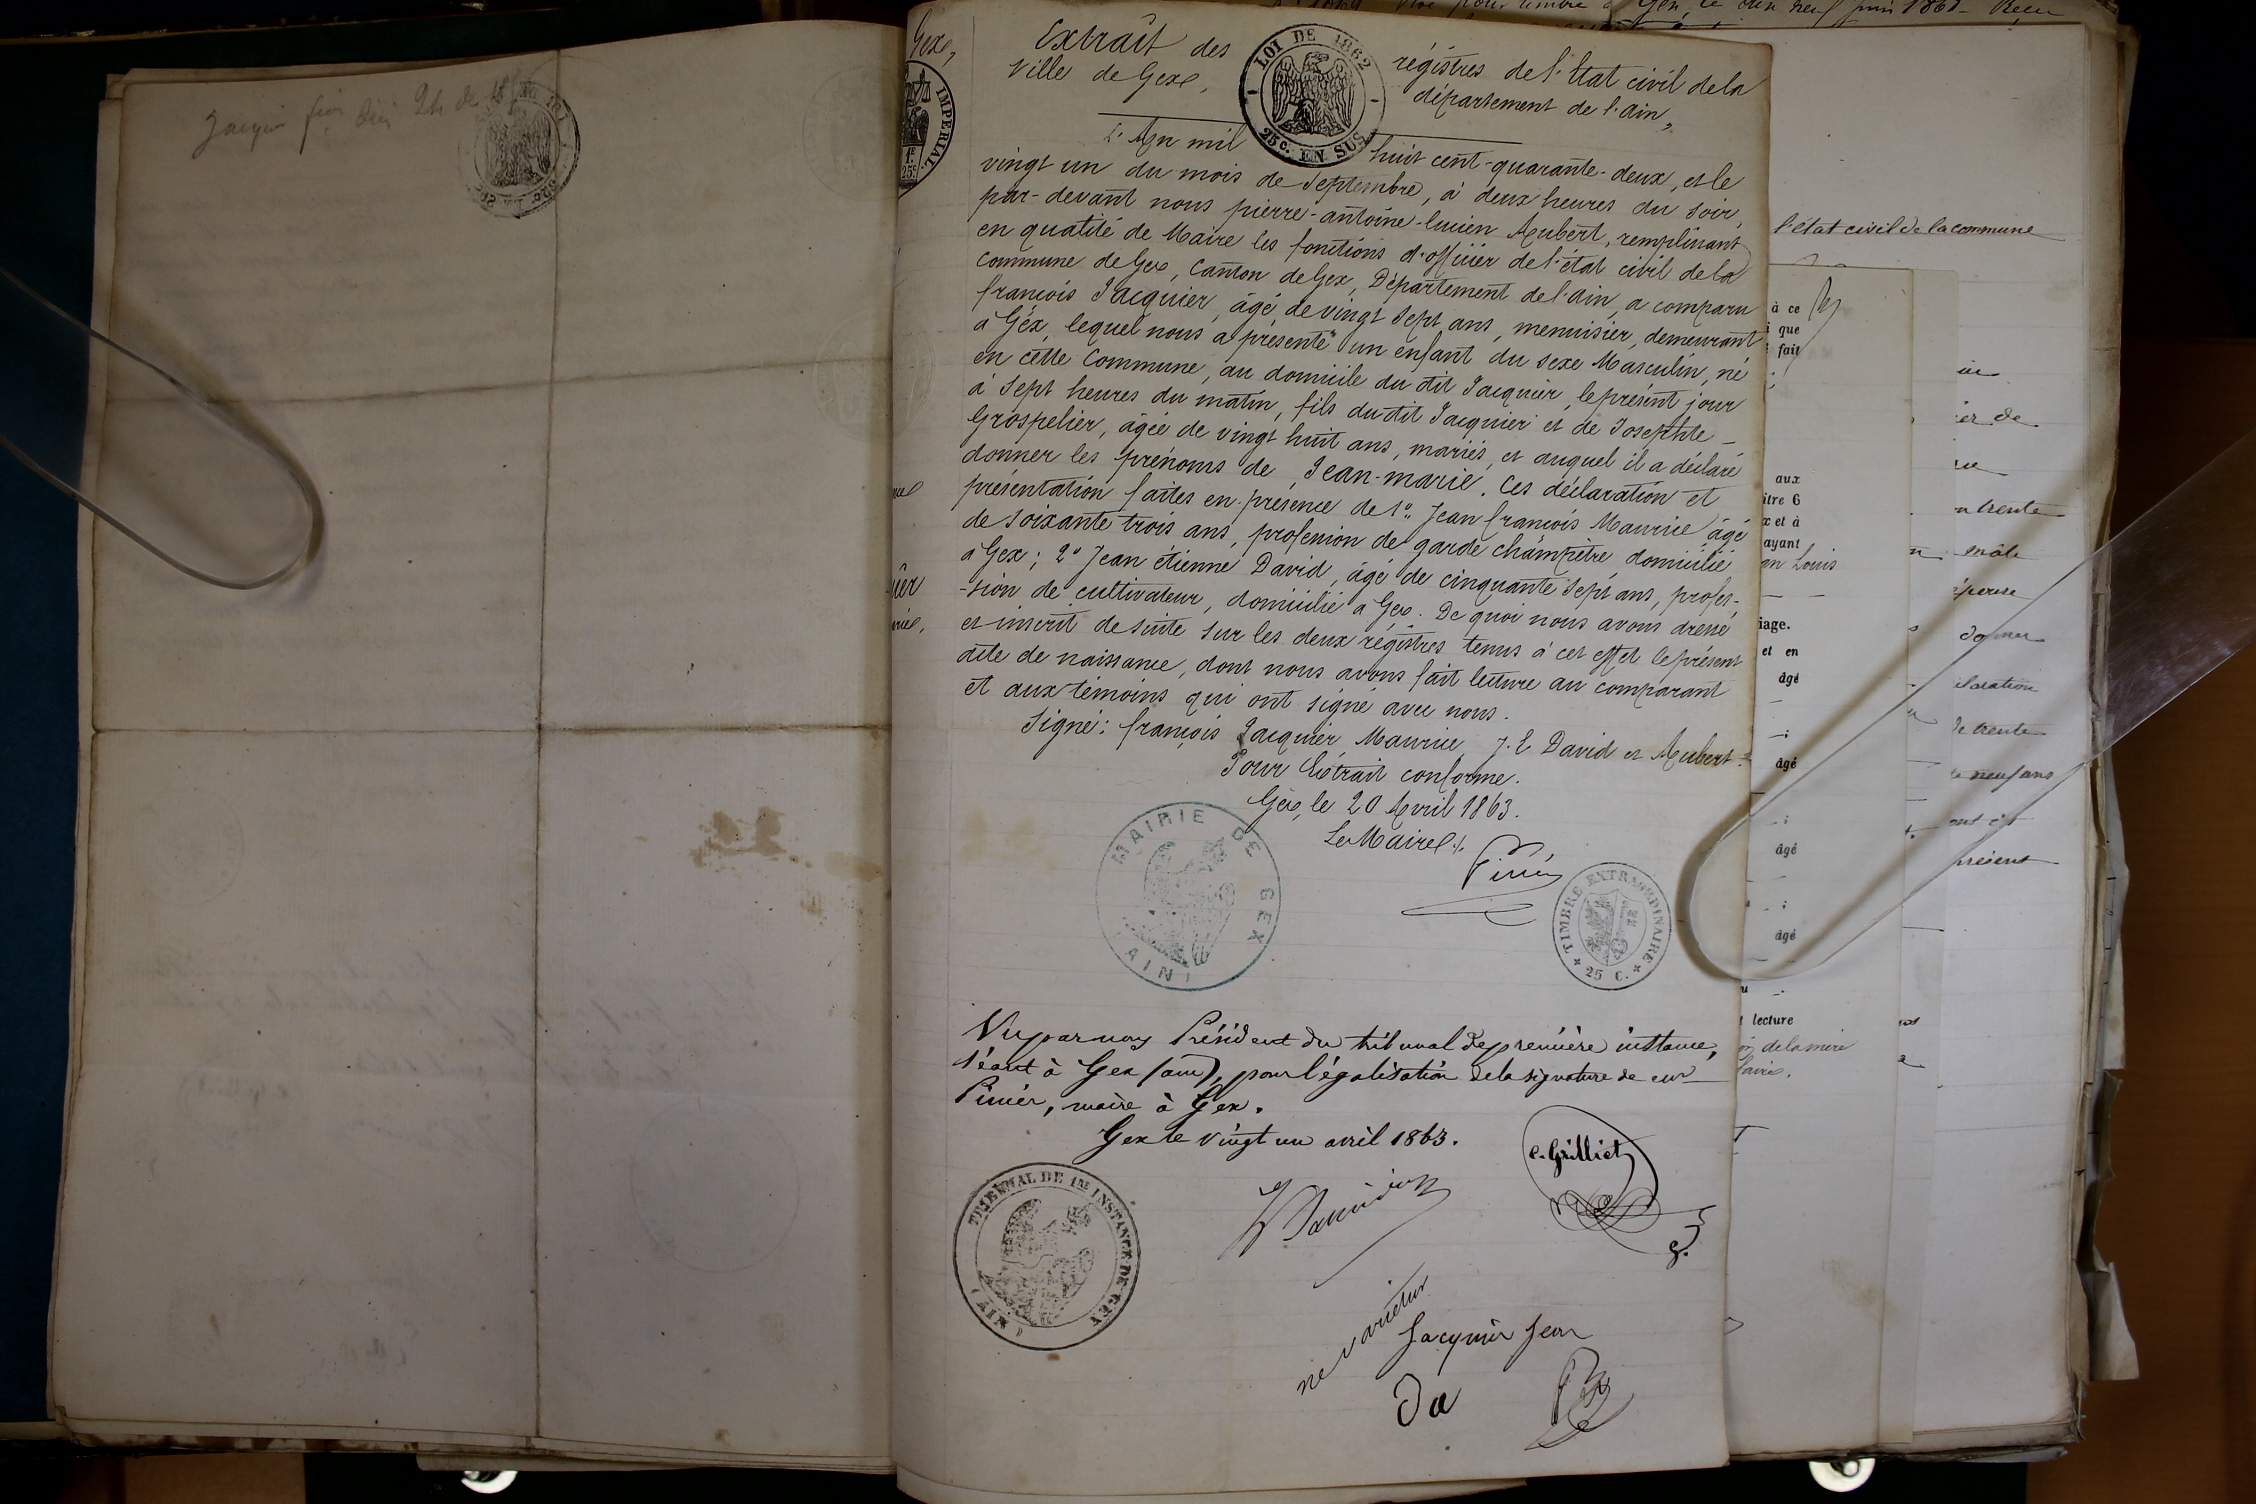 Extrait des régistres de l'État civil de la
Ville de Gex, département de l'Ain,
L'An mil huit cent-quarante-deux, et le
vingt un du mois de Septembre, à deux heures du soir,
par-devant nous pierre-antoine-lucien Aubert, remplissant
en qualité de Maire les fonctions d'officier de l'état civil de la
commune de Gex, Canton de Gex, Département de l'Ain, a comparu
françois Jacquier, âgé de vingt sept ans, menuisier, demeurant
à Gex, lequel nous a présenté un enfant du sexe Masculin, né
en cette Commune, au domicile du dit Jacquier, le présent jour
à sept heures du matin, fils du dit Jacquier et de Josephte
Grospelier, âgée de vingt huit ans, mariés, et auquel il a déclaré
donner les prénoms de Jean-marie. Ces déclaration et
présentation faites en présence de 1° Jean françois Maurice âgé
de soixante trois ans, profession de garde champêtre domicilié
à Gex; 2° Jean étienne David, âgé de cinquante sept ans, profes-
-sion de cultivateur, domicilié à Gex. De quoi nous avons dressé
et inscrit de suite sur les deux régistres tenus à cet effet le présent
acte de naissance, dont nous avons fait lecture au comparant
et aux témoins qui ont signé avec nous.
Signé: françois Jacquier, Maurice, J. E David et Aubert.
Pour Extrait conforme.
Gex, le 20 Avril 1863.
Le Maire
MAIRIE DE GEX
(AIN)
TIMBRE EXTRAORDINAIRE
25 C.
LOI DE 1862
25 c. EN SUS
IMPERIAL
Gex,
Vu par nous Président du tribunal de première instance,
séant à Gex (ain), pour légalisation de la signature de mr
Pinier, maire à Gex.
Gex le vingt un avril 1863.
c. Grilliet
TRIBUNAL DE 1RE INSTANCE DE GEX
(AIN)
ne varietur
Jacquier Jean
l'état civil de la commune
à ce
que
fait
aux
itre 6
x et à
ayant
Louis
iage.
et en
âgé
âgé
âgé
âgé
lecture
de la mère
ier de
trente
mâle
épouse
donner
de trente
neuf ans
présent